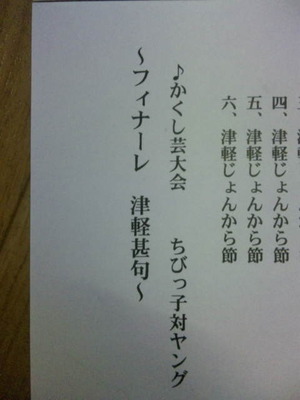 四、津軽じょんから節
五、津軽じょんから節
六、津軽じょんから節
♪かくし芸大会　ちびっ子対ヤング
～フィナーレ　津軽甚句～